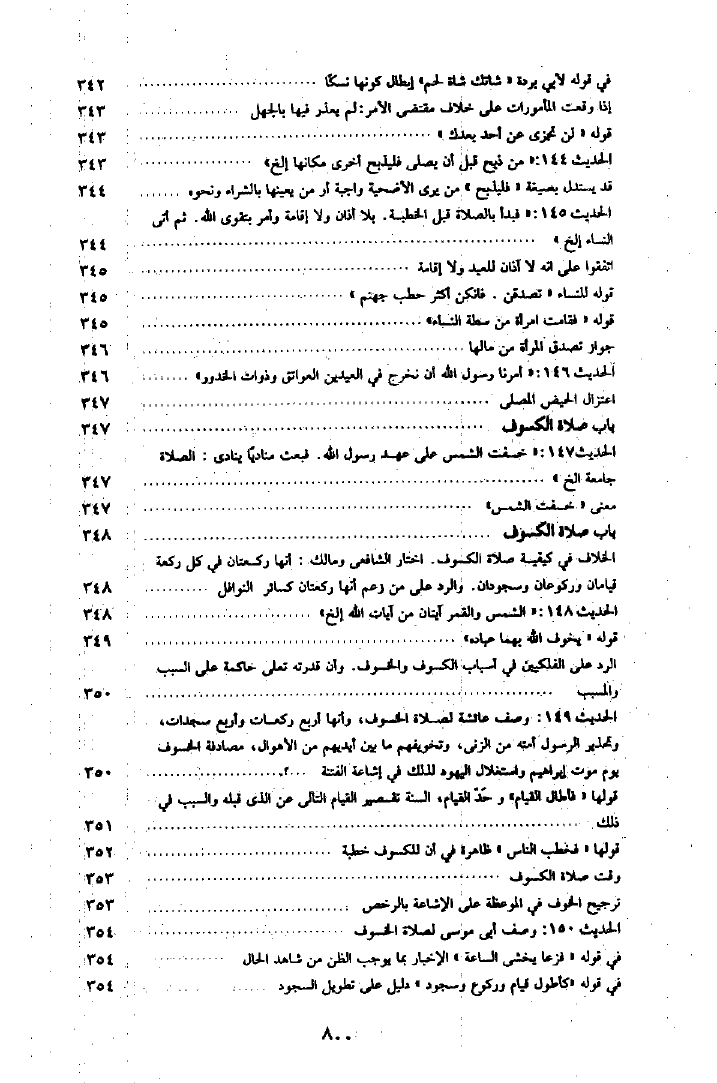 في قوله لأبي بردة « شاتك شاة لحم» إبطال كونها نسكًا ٣٤٢
إذا وقعت المأمورات على خلاف مقتضى الأمر: لم يعذر فيها بالجهل ٣٤٣
قوله « لن تجزى عن أحد بعدك » ٣٤٣
الحديث ١٤٤: « من ذبح قبل أن يصلى فليذبح أخرى مكانها إلخ» ٣٤٣
قد يستدل بصيغة « فليذبح » من يرى الأضحية واجبة أو من يعينها بالشراء ونحوه ٣٤٤
الحديث ١٤٥: « فبدأ بالصلاة قبل الخطبة. بلا أذان ولا إقامة وأمر بتقوى الله. ثم أتى
النساء إلخ » ٣٤٤
اتفقوا على انه لا آذان للعيد ولا إقامة ٣٤٥
قوله للنساء « تصدقن . فانكن أكثر حطب جهنم » ٣٤٥
قوله « فقامت امرأة من سطة النساء» ٣٤٥
جواز تصدق المرأة من مالها ٣٤٦
الحديث ١٤٦: « أمرنا رسول الله أن نخرج في العيدين العواتق وذوات الخدور» ٣٤٦
اعتزال الحيض المصلى ٣٤٧
باب صلاة الكسوف ٣٤٧
الحديث ١٤٧: « خسفت الشمس على عهد رسول الله. فبعث مناديًا ينادى : الصلاة
جامعة الخ » ٣٤٧
معنى « خسفت الشمس» ٣٤٧
باب صلاة الكسوف ٣٤٨
الخلاف في كيفية صلاة الكسوف. اختار الشافعى ومالك : أنها ركعتان في كل ركعة
قيامان وركوعان وسجودان. والرد على من زعم أنها ركعتان كسائر النوافل ٣٤٨
الحديث ١٤٨: « الشمس والقمر آيتان من آيات الله إلخ» ٣٤٨
قوله « يخوف الله بهما عباده» ٣٤٩
الرد على الفلكيين في أسباب الكسوف والخسوف. وأن قدرته تعلى حاكمة على السبب
والمسبب ٣٥٠
الحديث ١٤٩: وصف عائشة لصلاة الخسوف، وأنها أربع ركعات وأربع سجدات،
وتحذير الرسول أمته من الزنى، وتخويفهم ما بين أيديهم من الأهوال، مصادفة الخسوف
يوم موت إبراهيم واستغلال اليهود لذلك في إشاعة الفتنة ٣٥٠
قولها « فأطال القيام» و حدّ القيام، السنة تقصير القيام التالى عن الذى قبله والسبب في
ذلك ٣٥١
قولها « فخطب الناس » ظاهر في أن للكسوف خطبة ٣٥٢
وقت صلاة الكسوف ٣٥٣
ترجيح الخوف في الموعظة على الإشاعة بالرخص ٣٥٣
الحديث ١٥٠: وصف أبى موسى لصلاة الخسوف ٣٥٤
في قوله « فزعا يخشى الساعة » الإخبار بما يوجب الظن من شاهد الحال ٣٥٤
في قوله «كأطول قيام وركوع وسجود » دليل على تطويل السجود ٣٥٤
٨٠٠